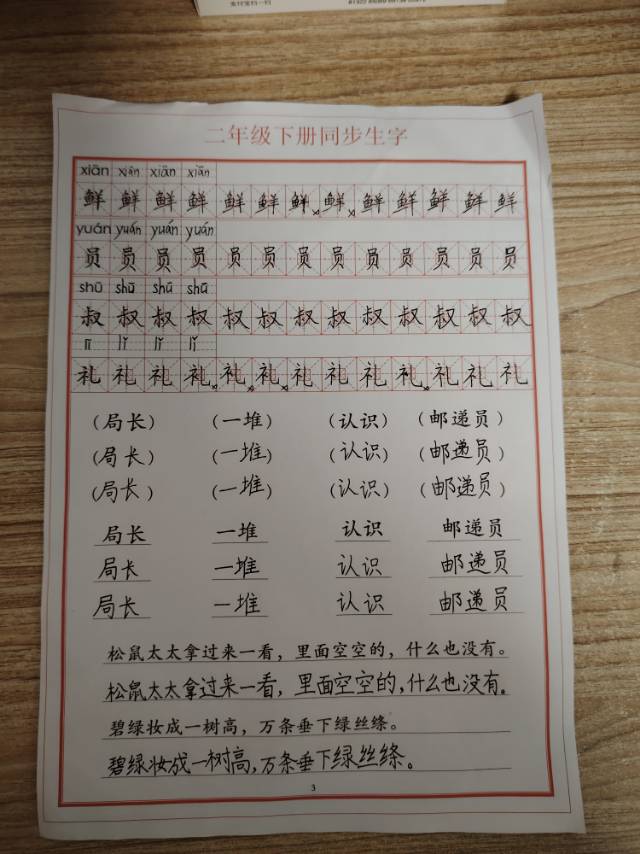 二年级下册同步生字
xiān xiān xiān xiān
鲜 鲜 鲜 鲜 鲜 鲜 鲜 鲜 鲜 鲜 鲜 鲜 鲜
yuán yuán yuán yuán
员 员 员 员 员 员 员 员 员 员 员 员 员
shū shū shū shū
叔 叔 叔 叔 叔 叔 叔 叔 叔 叔 叔 叔 叔
lǐ lǐ lǐ
礼 礼 礼 礼 礼 礼 礼 礼 礼 礼 礼 礼 礼
(局长) (一堆) (认识) (邮递员)
(局长) (一堆) (认识) (邮递员)
(局长) (一堆) (认识) (邮递员)
局长 一堆 认识 邮递员
局长 一堆 认识 邮递员
局长 一堆 认识 邮递员
松鼠太太拿过来一看，里面空空的，什么也没有。
松鼠太太拿过来一看，里面空空的，什么也没有。
碧绿妆成一树高，万条垂下绿丝绦。
碧绿妆成一树高，万条垂下绿丝绦。
3